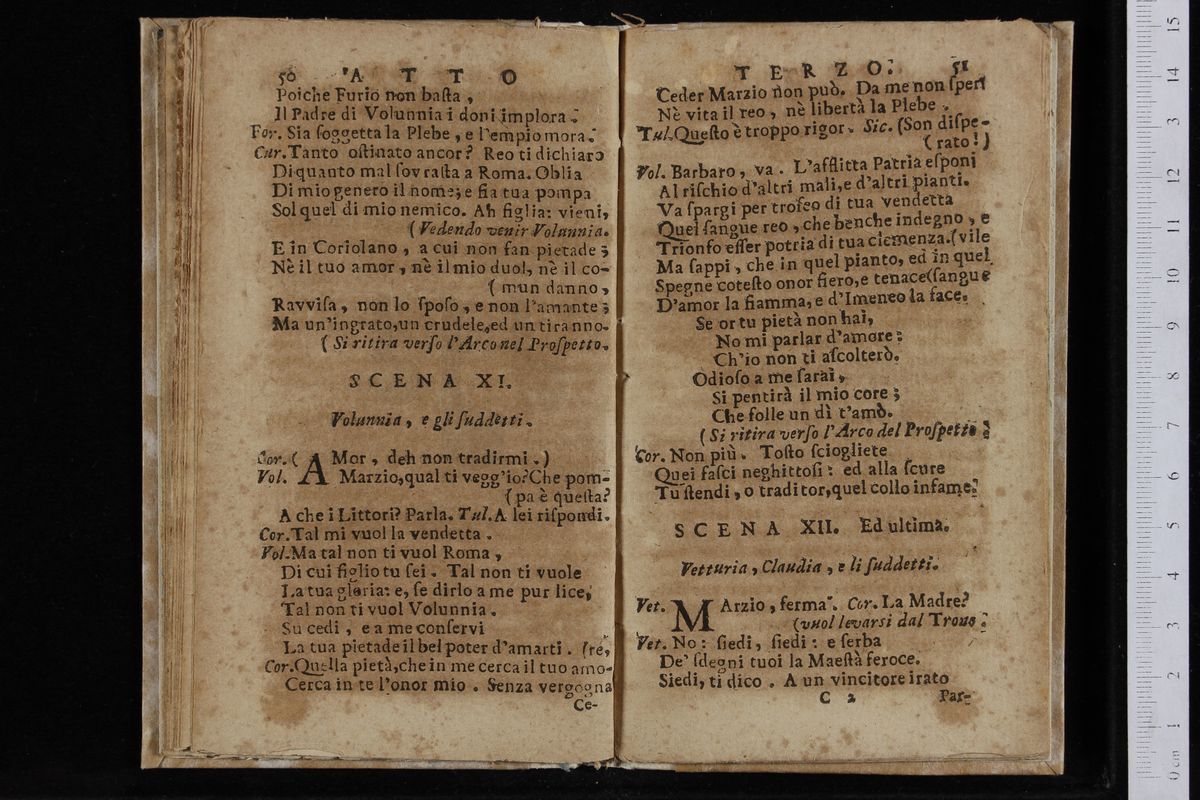 50 ATTO
Poiche Furio non baſta,
Il Padre di Volunnia i doni implora.
For. Sia ſoggetta la Plebe, e l'empio mora.
Cur. Tanto oſtinato ancor? Reo ti dichiaro
Di quanto mal ſovraſta a Roma. Oblia
Di mio genero il nome; e ſia tua pompa
Sol quel di mio nemico. Ah figlia: vieni,
(Vedendo venir Volunnia.
E in Coriolano, a cui non fan pietade;
Nè il tuo amor, nè il mio duol, nè il co-
(mun danno,
Ravviſa, non lo ſpoſo, e non l'amante;
Ma un'ingrato, un crudele, ed un tiranno.
(Si ritira verſo l'Arco nel Proſpetto.
SCENA XI.
Volunnia, e gli ſuddetti.
Cor. (AMor, deh non tradirmi.)
Vol. Marzio, qual ti vegg'io? Che pom-
(pa è queſta?
A che i Littori? Parla. Tul. A lei riſpondi.
Cor. Tal mi vuol la vendetta.
Vol. Ma tal non ti vuol Roma,
Di cui figlio tu ſei. Tal non ti vuole
La tua gloria: e, ſe dirlo a me pur lice,
Tal non ti vuol Volunnia.
Su cedi, e a me conſervi
La tua pietade il bel poter d'amarti. (re,
Cor. Quella pietà, che in me cerca il tuo amo-
Cerca in te l'onor mio. Senza vergogna
Ce-
TERZO. 51
Ceder Marzio non può. Da me non ſperi
Nè vita il reo, nè libertà la Plebe.
Tul. Queſto è troppo rigor. Sic. (Son diſpe-
(rato!)
Vol. Barbaro, va. L'afflitta Patria eſponi
Al riſchio d'altri mali, e d'altri pianti.
Va ſpargi per trofeo di tua vendetta
Quel ſangue reo, che benche indegno, e
Trionfo eſſer potria di tua clemenza. (vile
Ma ſappi, che in quel pianto, ed in quel
Spegne coteſto onor fiero, e tenace (ſangue
D'amor la fiamma, e d'Imeneo la face.
Se or tu pietà non hai,
No mi parlar d'amore:
Ch'io non ti aſcolterò.
Odioſo a me ſarai,
Si pentirà il mio core;
Che folle un dì t'amò.
(Si ritira verſo l'Arco del Proſpetto.
Cor. Non più. Toſto ſciogliete
Quei faſci neghittoſi: ed alla ſcure
Tu ſtendi, o traditor, quel collo infame.
SCENA XII. Ed ultima.
Vetturia, Claudia, e li ſuddetti.
Vet. MArzio, ferma. Cor. La Madre?
(vuol levarsi dal Trono.
Vet. No: ſiedi, ſiedi: e ſerba
De' ſdegni tuoi la Maeſtà feroce.
Siedi, ti dico. A un vincitore irato
C 2 Par-